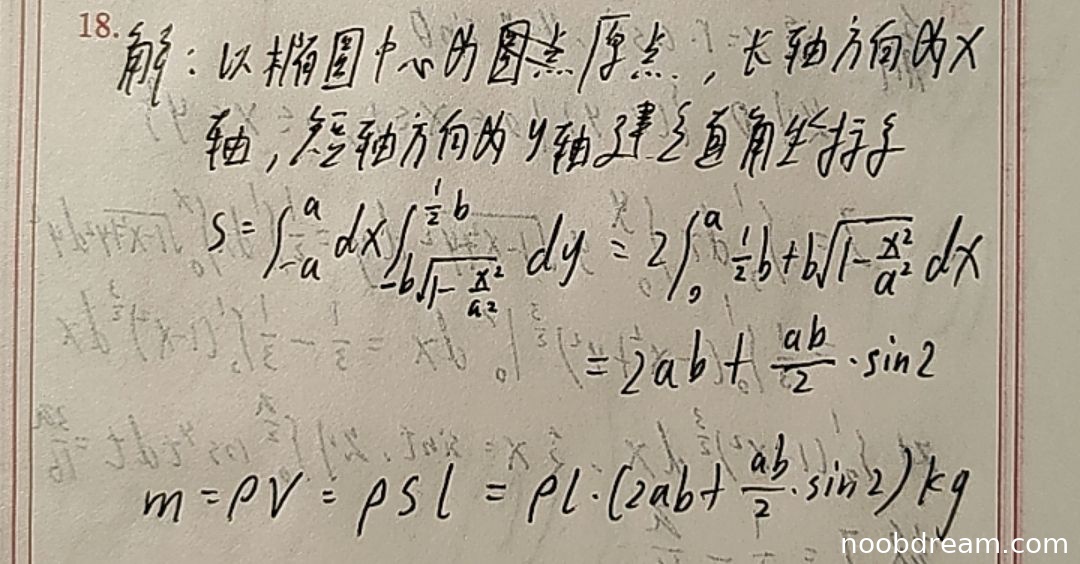 18.
解：以椭圆中心为原点，长轴方向为X
轴，短轴方向为y轴建立直角坐标系
S=∫_{-a}^{a} dx∫_{-b√(1-x²/a²)}^{½b} dy = 2∫_{0}^{a} ½b+b√(1-x²/a²) dx
= 2ab + ab/2 · sin2
m = ρV = ρSl = ρl·(2ab+ ab/2 · sin2) kg
noobdream.com